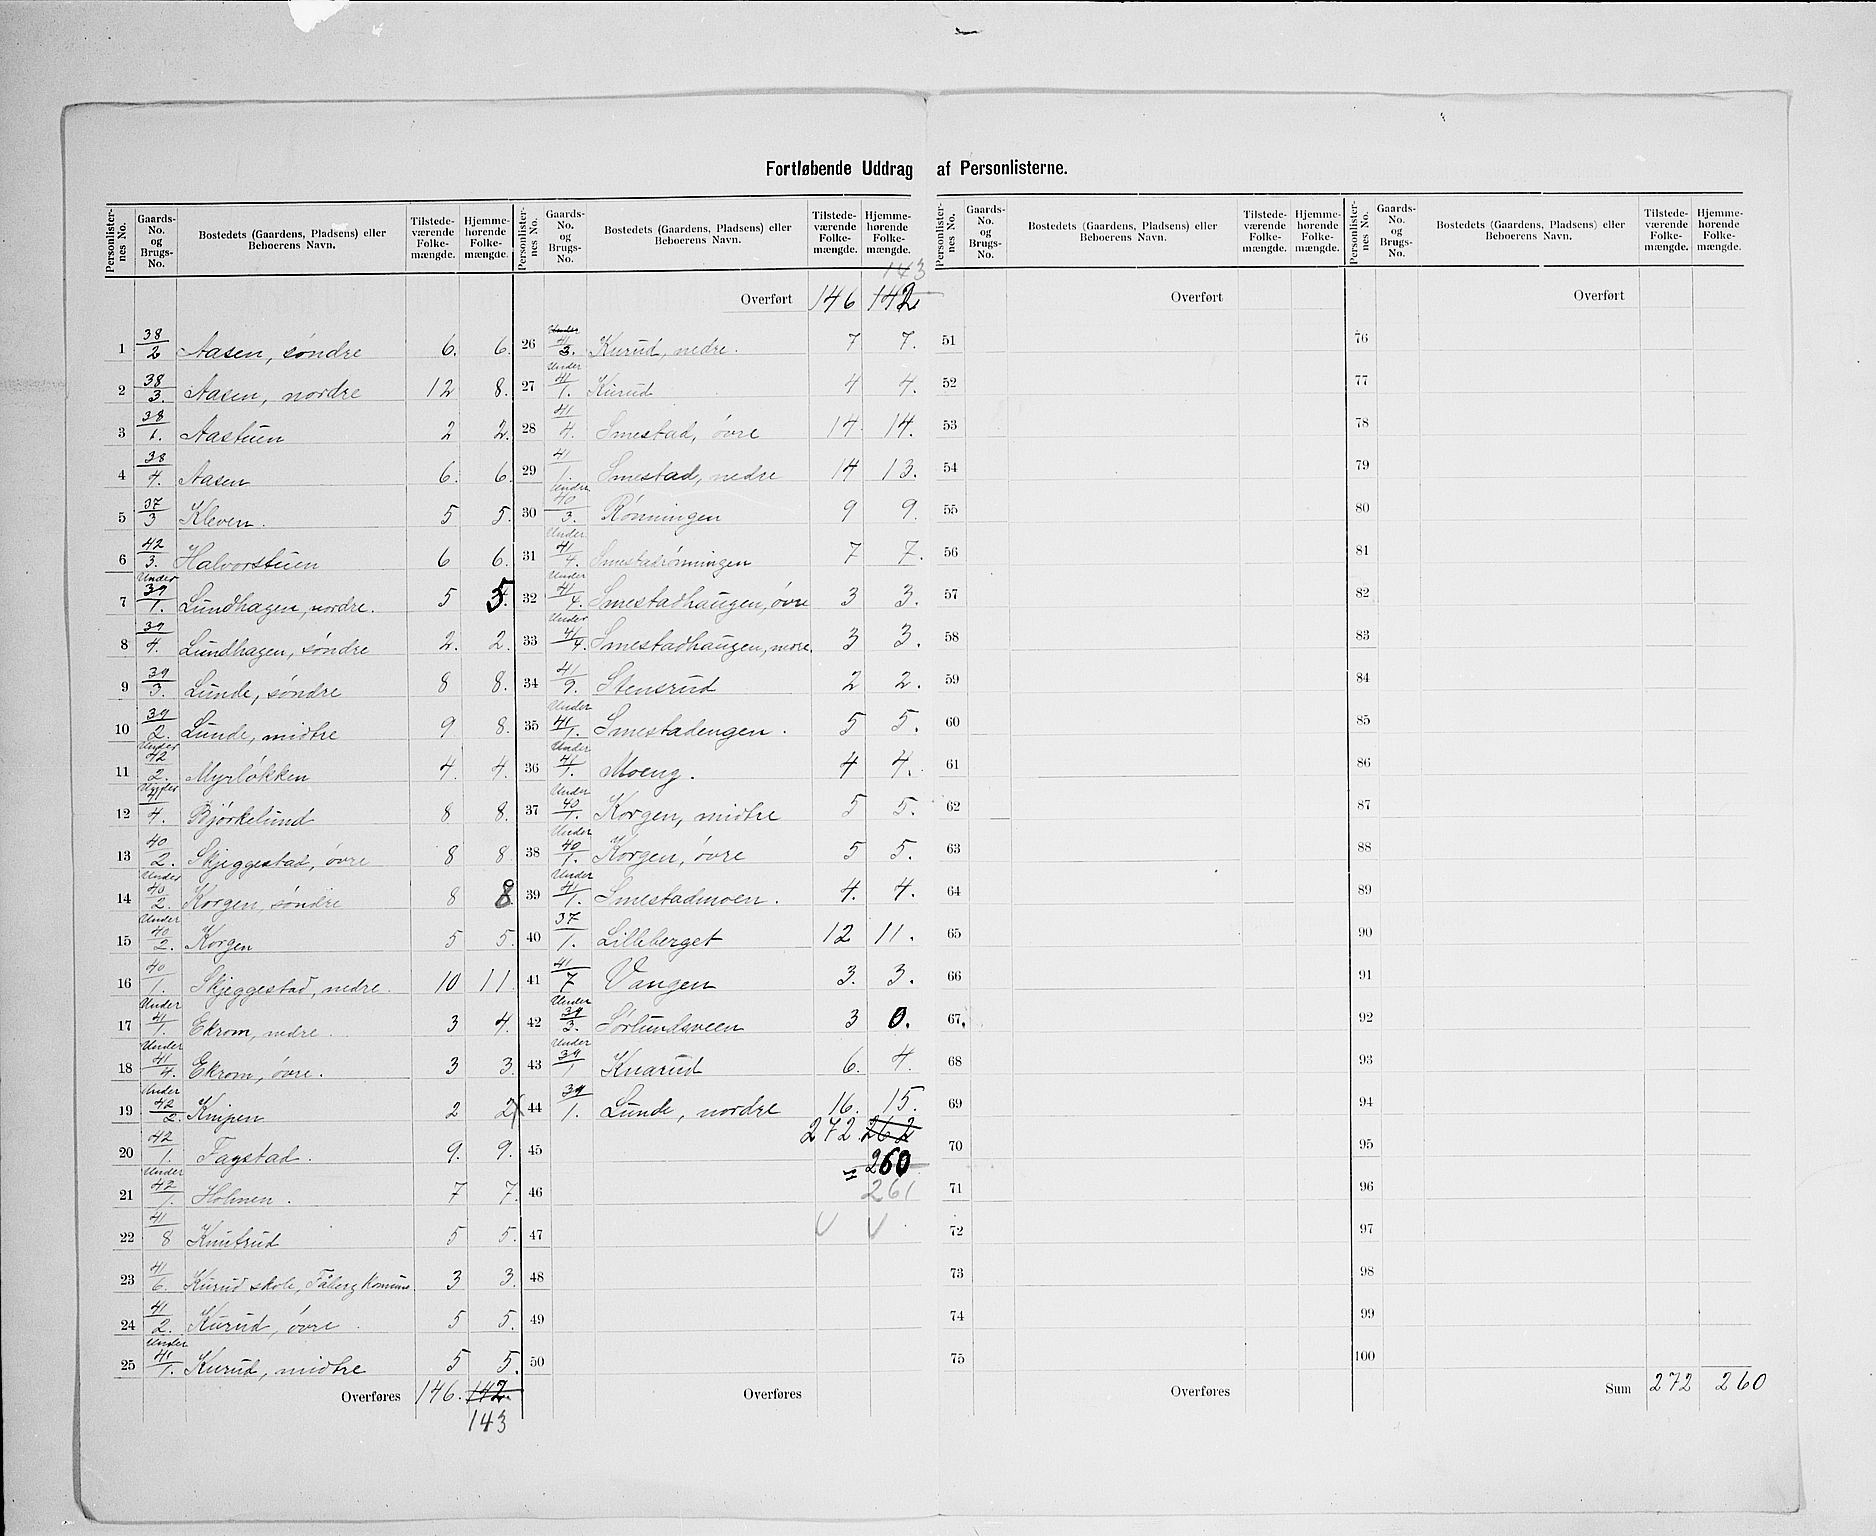 Fortløbende Uddrag af Personlisterne.
Personlisternes No. | Gaards-No. og Brugs-No. | Bostedets (Gaardens, Pladsens) eller Beboerens Navn. | Tilstedeværende Folkemængde. | Hjemmehørende Folkemængde.
1 38/2 Aasen, søndre 6. 6.
2 38/3. Aasen, nordre 12 8.
3 38/1. Aastuen 2 2.
4 38/4. Aasen 6. 6.
5 37/3 Kleven. 5 5.
6 42/3. Halvorstuen 6 6.
7 Under 39/1. Lundhagen, nordre. 5 5.
8 39/4. Lundhagen, søndre 2. 2.
9 39/3. Lunde, søndre 8 8.
10 39/2. Lunde, midtre 9 8.
11 Under 42/2. Myrløkken 4. 4.
12 Under 41/4. Bjørkelund 8 8.
13 40/2. Skjeggestad, øvre 8 8
14 Under 40/2. Korgen, søndre 8 8
15 Under 40/2. Korgen 5 5.
16 40/1. Skjeggestad, nedre. 10 11.
17 Under 41/1. Ekrom, nedre. 3 4.
18 Under 41/4. Ekrom, øvre. 3 3.
19 Under 42/2. Knipen 2 2
20 42/1. Fagstad. 9. 9.
21 Under 42/1. Holmen. 7 7.
22 41/8 Knutrud 5 5.
23 41/6. Kurud skole, Fåberg komune. 3 3.
24 41/2. Kurud, øvre. 5 5.
25 Under 41/1. Kurud, midtre 5 5.
Overføres 146. 142.
143
Personlisternes No. | Gaards-No. og Brugs-No. | Bostedets (Gaardens, Pladsens) eller Beboerens Navn. | Tilstedeværende Folkemængde. | Hjemmehørende Folkemængde.
143
Overført 146 142
26 Under 41/3. Kurud, nedre. 7 7.
27 Under 41/1. Kurud 4 4.
28 41/4. Smestad, øvre 14 14.
29 41/1. Smestad, nedre 14 13.
30 Under 40/3. Rønningen 9 9.
31 Under 41/4. Smestadrønningen 7 7.
32 Under 41/4. Smestadhaugen, øvre 3 3.
33 Under 41/4. Smestadhaugen, nedre. 3 3.
34 41/9. Stensrud 2 2.
35 Under 41/1. Smestadengen. 5 5.
36 Under 41/1. Moeng. 4 4.
37 Under 40/1. Korgen, midtre 5 5.
38 Under 40/1. Korgen, øvre 5 5.
39 Under 41/1. Smestadmoen. 4. 4.
40 37/1. Lilleberget 12 11.
41 41/7 Vangen 3. 3.
42 Under 39/3. Sørlundsveen 3 0.
43 Under 39/1 Knarud 6. 4.
44 39/1. Lunde, nordre 16. 15.
272. 262
45
= 260
46 261
47
48
49
50
Overføres
Personlisternes No. | Gaards-No. og Brugs-No. | Bostedets (Gaardens, Pladsens) eller Beboerens Navn. | Tilstedeværende Folkemængde. | Hjemmehørende Folkemængde.
Overført
51
52
53
54
55
56
57
58
59
60
61
62
63
64
65
66
67
68
69
70
71
72
73
74
75
Overføres
Personlisternes No. | Gaards-No. og Brugs-No. | Bostedets (Gaardens, Pladsens) eller Beboerens Navn. | Tilstedeværende Folkemængde. | Hjemmehørende Folkemængde.
Overført
76
77
78
79
80
81
82
83
84
85
86
87
88
89
90
91
92
93
94
95
96
97
98
99
100
Sum 272 260